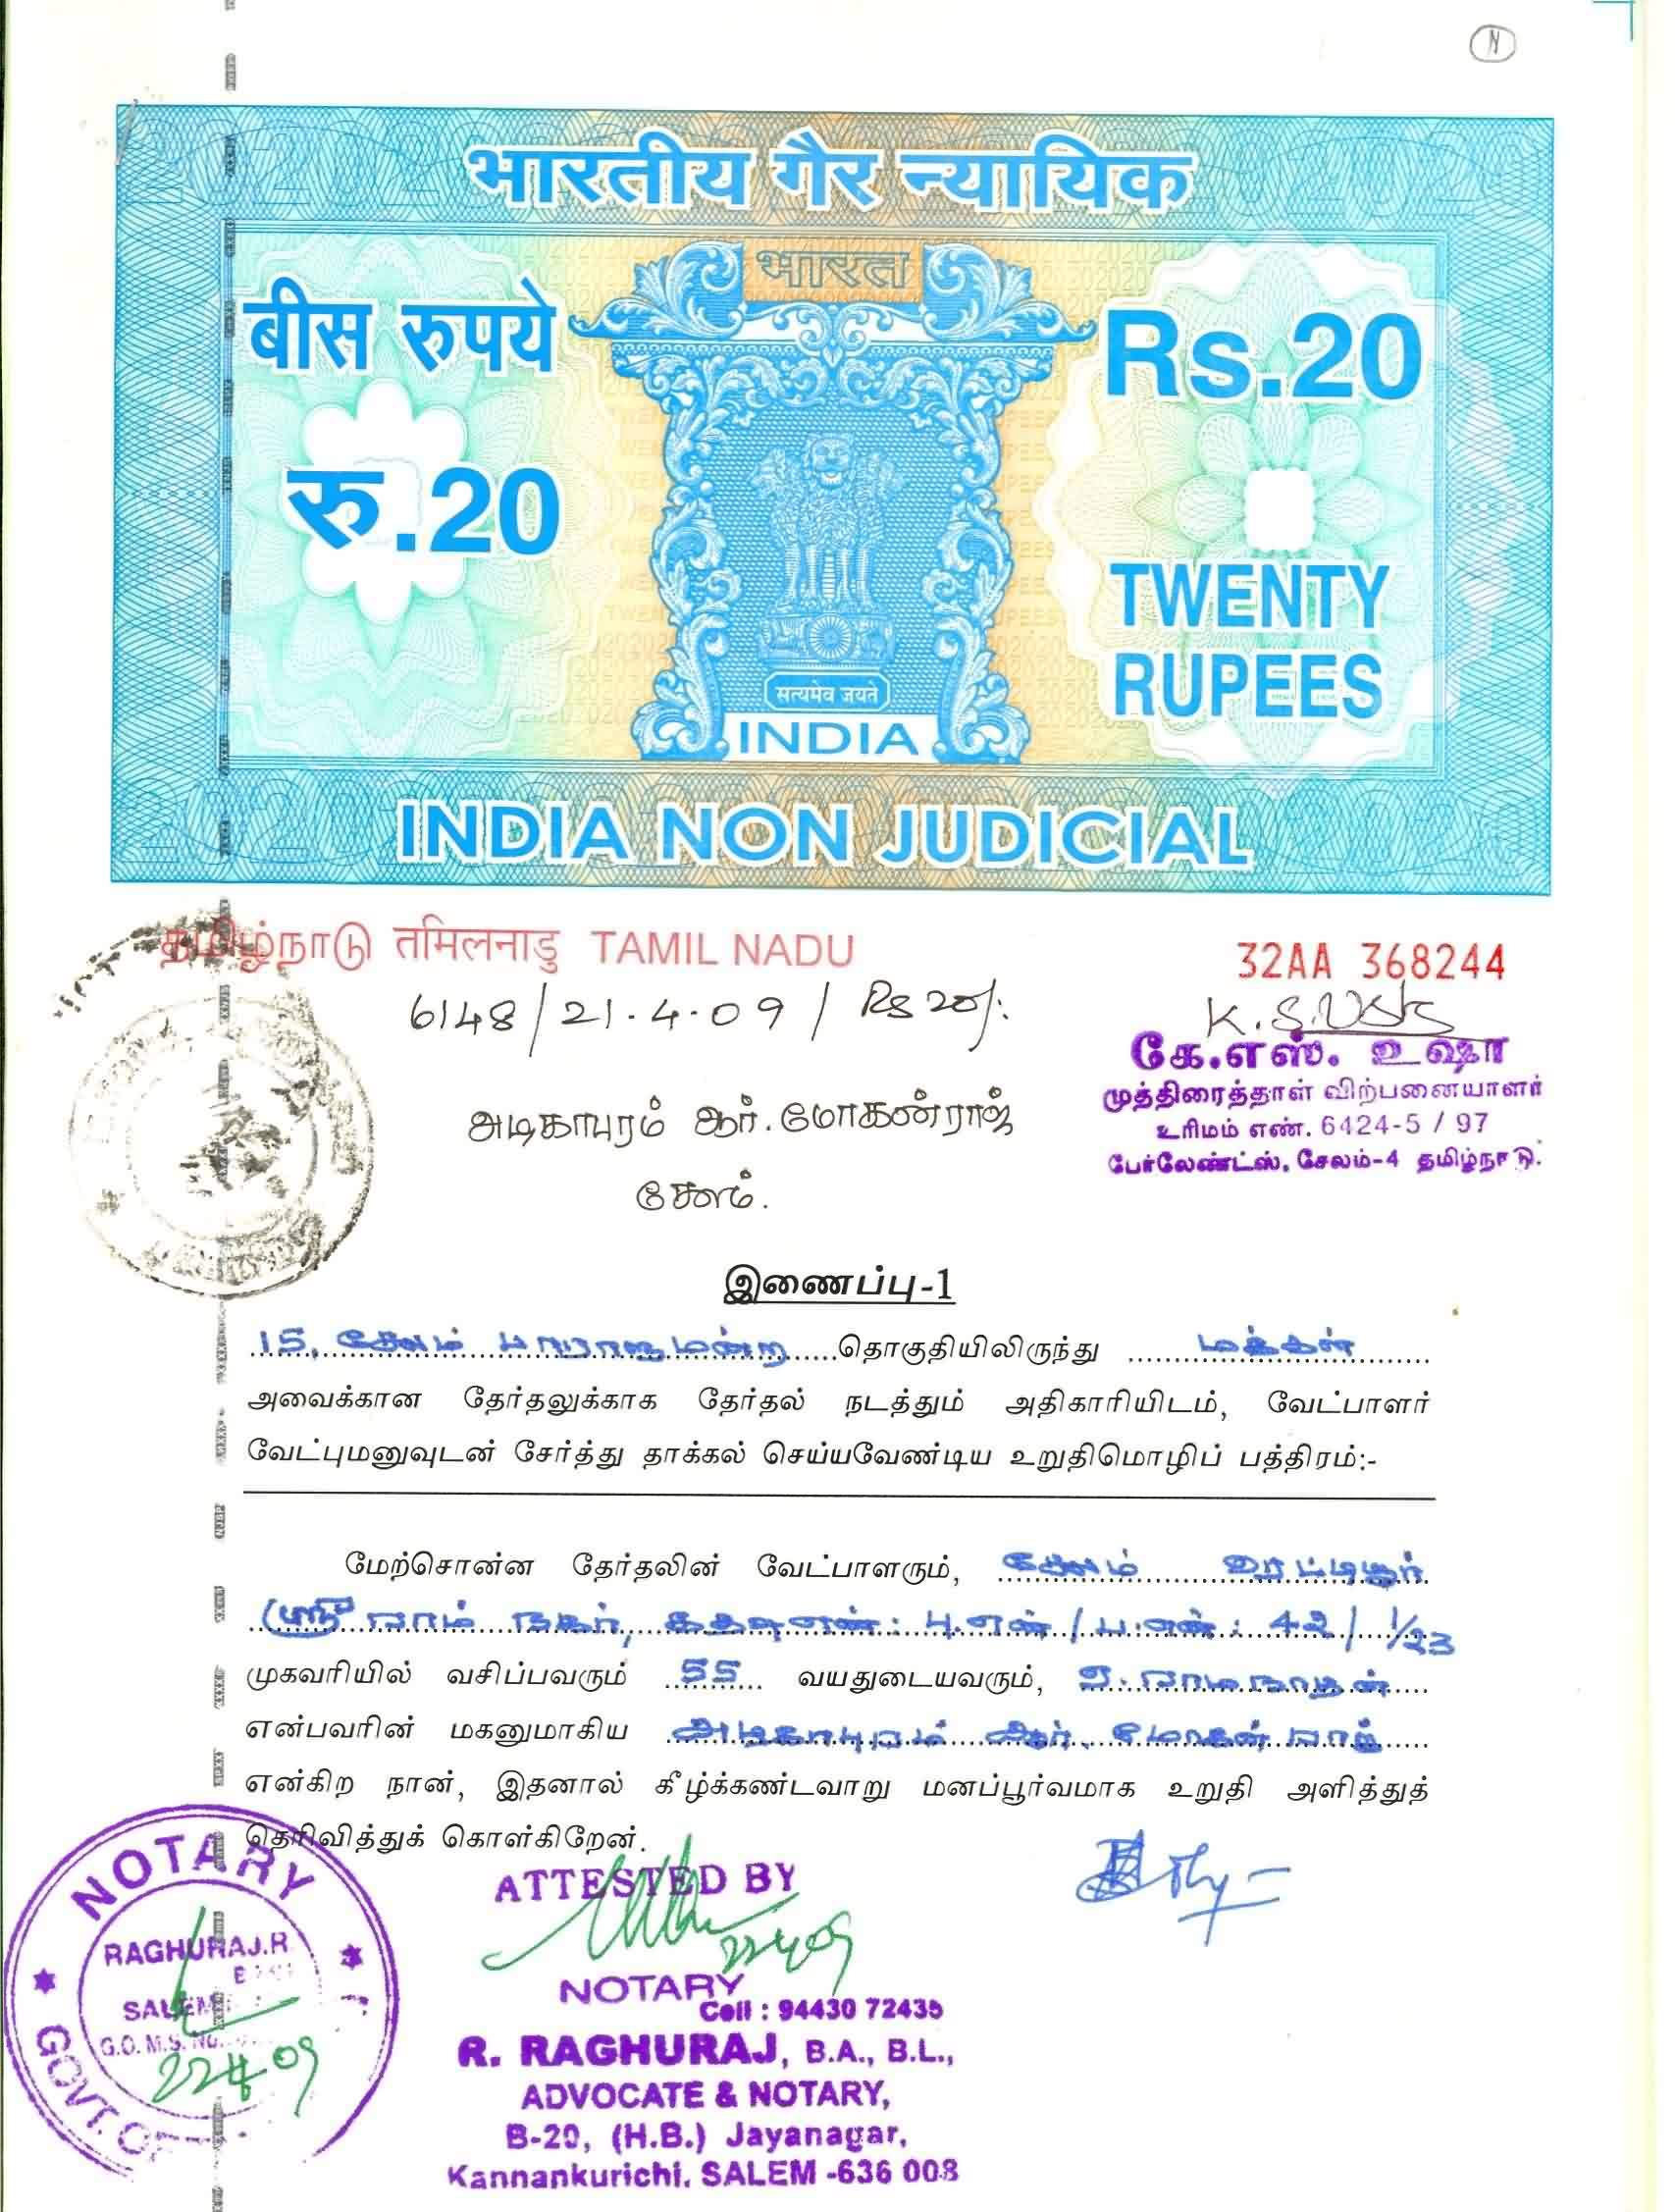 N
भारतीय गैर न्यायिक
भारत
बीस रुपये
Rs.20
रु.20
TWENTY
RUPEES
सत्यमेव जयते
INDIA
INDIA NON JUDICIAL
தமிழ்நாடு तमिलनाडु TAMIL NADU
32AA 368244
6148/21.4.09/ Rs 20/-
K.S.Usha
கே.எஸ். உஷா
முத்திரைத்தாள் விற்பனையாளர்
உரிமம் எண். 6424-5 / 97
பேர்லேண்ட்ஸ், சேலம்-4 தமிழ்நாடு.
அடிகாபுரம் ஆர்.மோகன்ராஜ்
சேலம்.
இணைப்பு-1
15, சேலம் பாராளுமன்ற தொகுதியிலிருந்து மக்கள்
அவைக்கான தேர்தலுக்காக தேர்தல் நடத்தும் அதிகாரியிடம், வேட்பாளர்
வேட்புமனுவுடன் சேர்த்து தாக்கல் செய்யவேண்டிய உறுதிமொழிப் பத்திரம்:-
மேற்சொன்ன தேர்தலின் வேட்பாளரும், சேலம்
ஸ்ரீ ராம் நகர், கதவுஎண்: பு.எண் / ப.எண்: 42 / 1/23
முகவரியில் வசிப்பவரும் 55 வயதுடையவரும்,
என்பவரின் மகனுமாகிய அடிகாபுரம் ஆர். மோகன் ராஜ்
என்கிற நான், இதனால் கீழ்க்கண்டவாறு மனப்பூர்வமாக உறுதி அளித்துத்
தெரிவித்துக் கொள்கிறேன்.
ATTESTED BY
22409
NOTARY
Cell : 94430 72435
R. RAGHURAJ, B.A., B.L.,
ADVOCATE & NOTARY,
B-20, (H.B.) Jayanagar,
Kannankurichi, SALEM -636 008
NOTARY
RAGHURAJ.R
SALEM
G.O. M.S. No.
22409
GOVT. OF